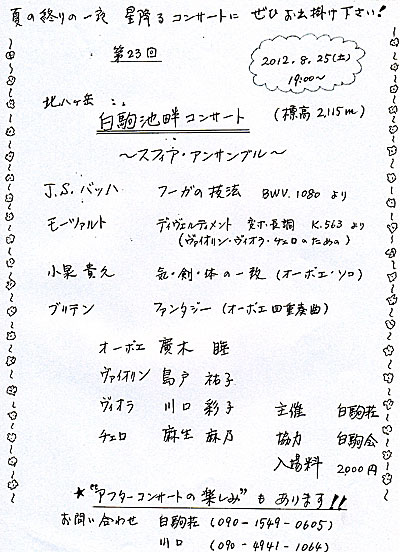 夏の終りの一夜 星降るコンサートに ぜひお出掛け下さい!
第23回
2012.8.25(土)
19:00〜
北八ヶ岳
白駒池畔コンサート (標高2,115m)
〜スフィア・アンサンブル〜
J.S.バッハ フーガの技法 BWV.1080 より
モーツァルト ディヴェルティメント 変ホ長調 K.563 より
(ヴァイオリン・ヴィオラ・チェロのための)
小泉貴久 気・剣・体の一致 (オーボエ・ソロ)
ブリテン ファンタジー (オーボエ四重奏曲)
オーボエ 廣木 睦
ヴァイオリン 島戸 祐子
ヴィオラ 川口 彩子 主催 白駒荘
チェロ 麻生 麻乃 協力 白駒会
入場料 2000円
★"アフターコンサートの楽しみ"もあります!!
お問い合わせ 白駒荘 (090-1549-0605)
川口 (090-4941-1064)